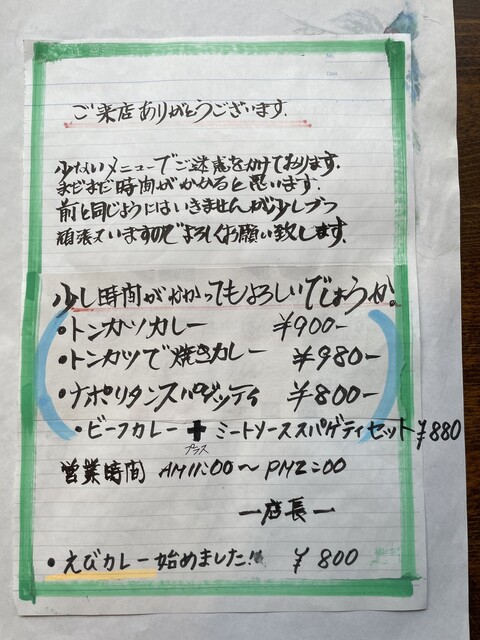 ご来店ありがとうございます.
少ないメニューでご迷惑をかけております.
まだまだ時間がかかると思います.
前と同じようにはいきませんが少しづつ
頑張ていますのでよろしくお願い致します.
少し時間がかかってもよろしいでしょうか。
・トンカツカレー ¥900-
・トンカツで焼きカレー ¥980-
・ナポリタンスパゲッティ ¥800-
・ビーフカレー + ミートソーススパゲティセット ¥880
プラス
営業時間 AM11:00～PM2:00
ー店長ー
・えびカレー始めました!! ¥800